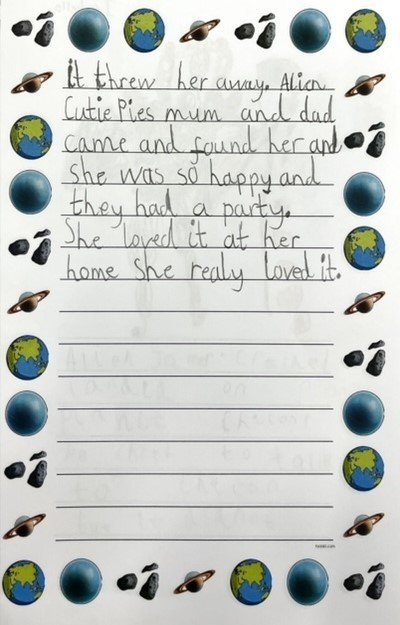 it threw her away. Alien
Cutie Pies mum and dad
came and found her and
She was so happy and
they had a party.
She loved it at her
home She realy loved it.